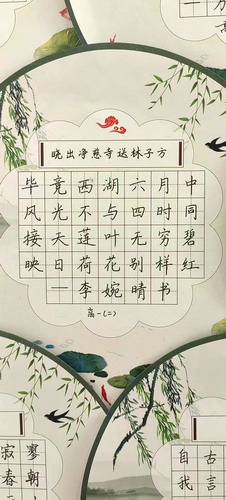 晓出净慈寺送林子方
毕竟西湖六月中
风光不与四时同
接天莲叶无穷碧
映日荷花别样红
—李婉晴书
高一(二)
寂寥
春朝
自古
我言